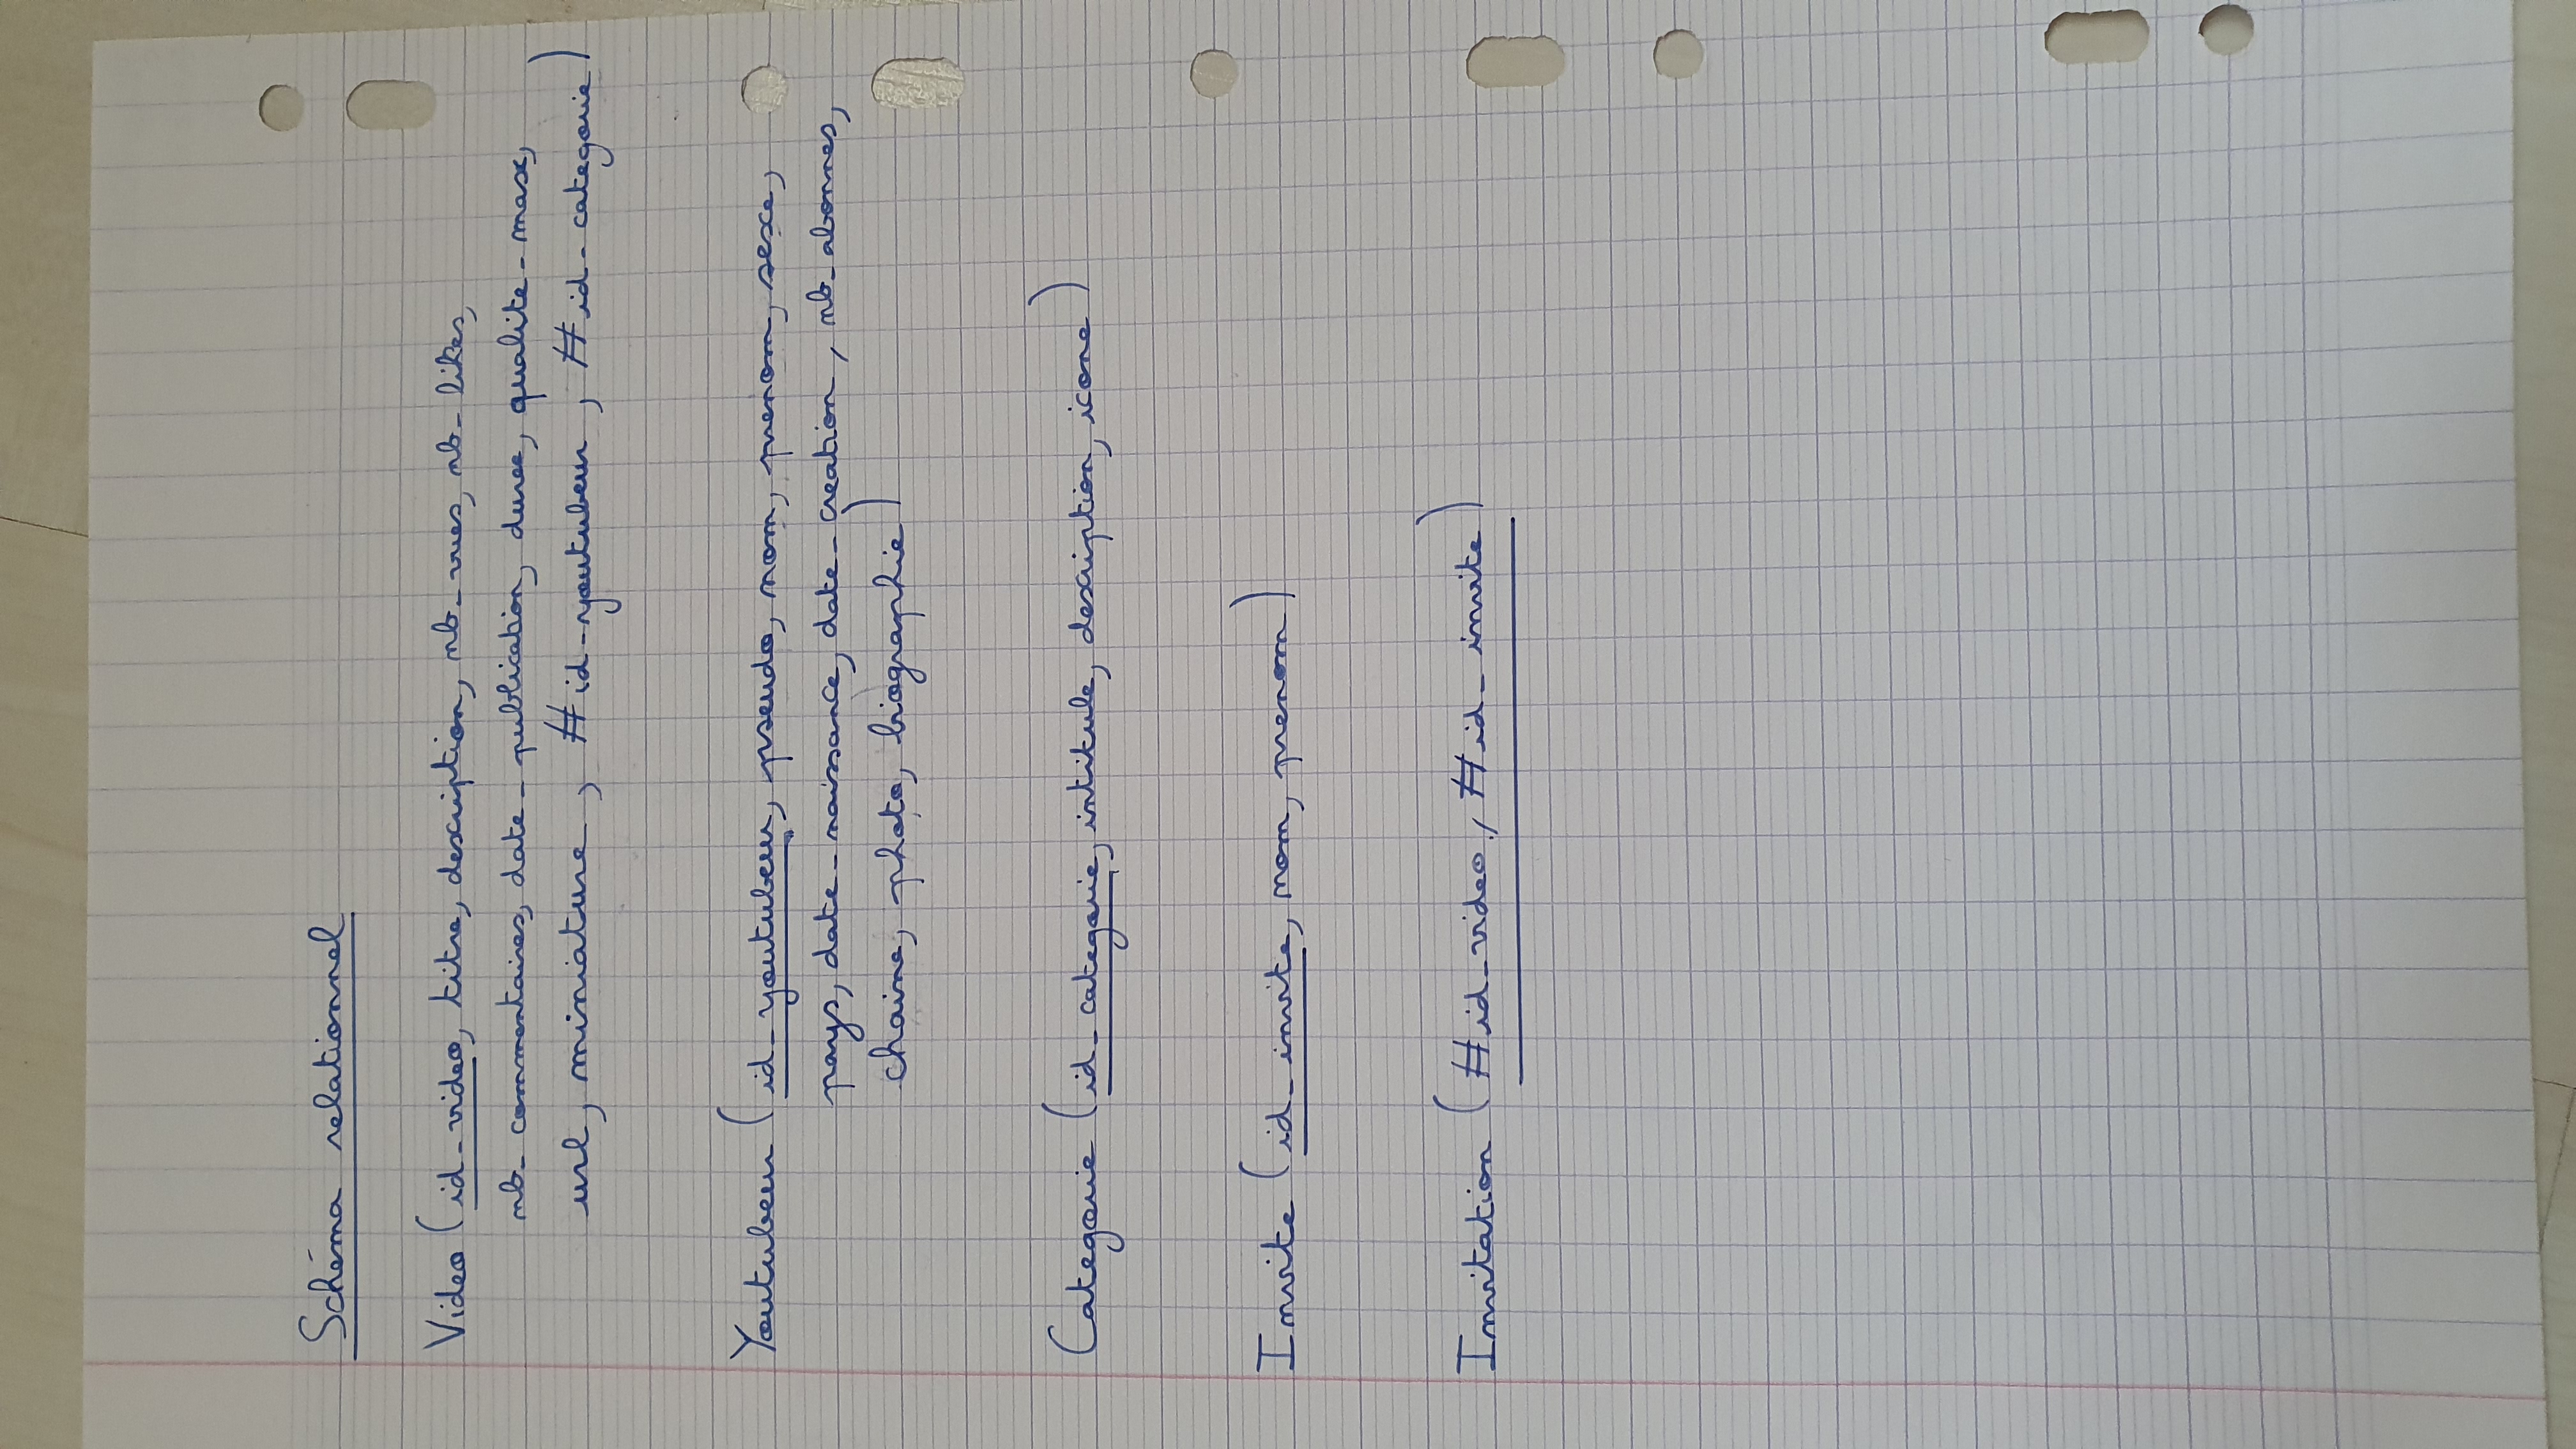 Schéma relationnel
Video (id_video, titre, description, nb_vues, nb_likes,
nb_commentaires, date_publication, duree, qualite_max,
url, miniature, #id_youtubeur, #id_categorie)
Youtubeur (id_youtubeur, pseudo, nom, prenom, sexe,
pays, date_naissance, date_creation, nb_abonnes,
chaine, photo, biographie)
Categorie (id_categorie, intitule, description, icone)
Invite (id_invite, nom, prenom)
Invitation (#id_video, #id_invite)